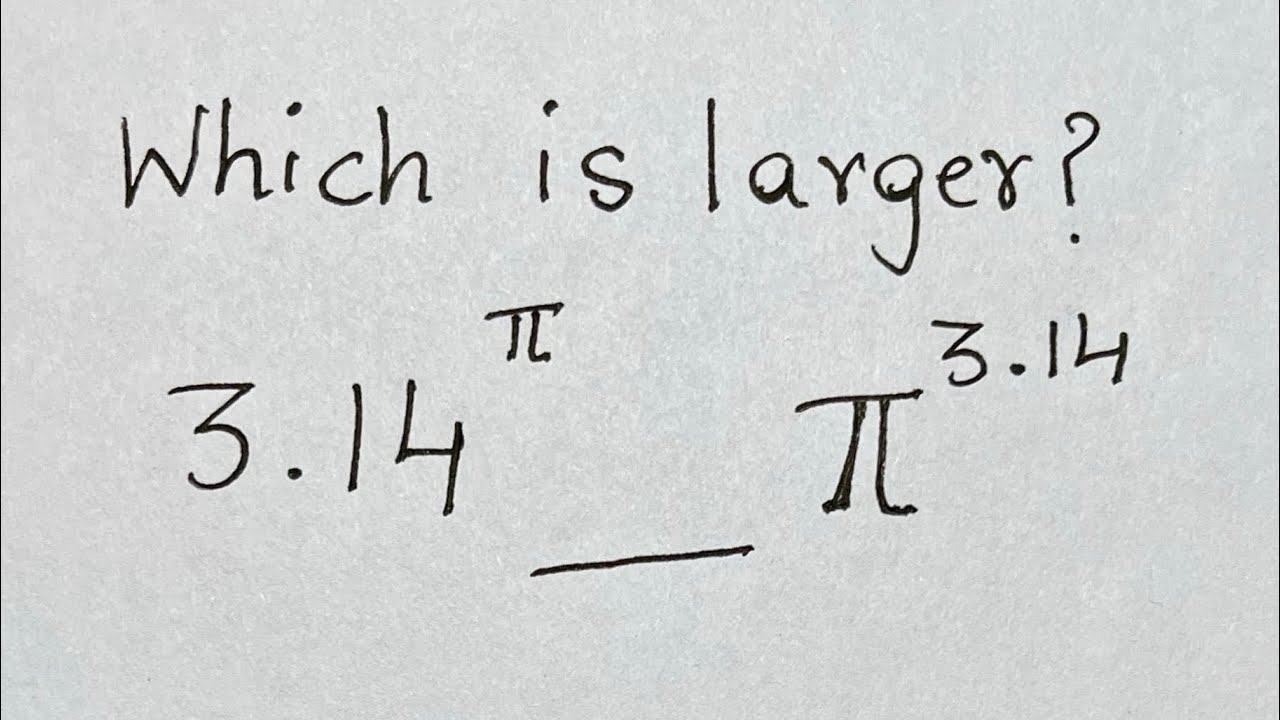 Which is larger?
3.14^π __ π^3.14